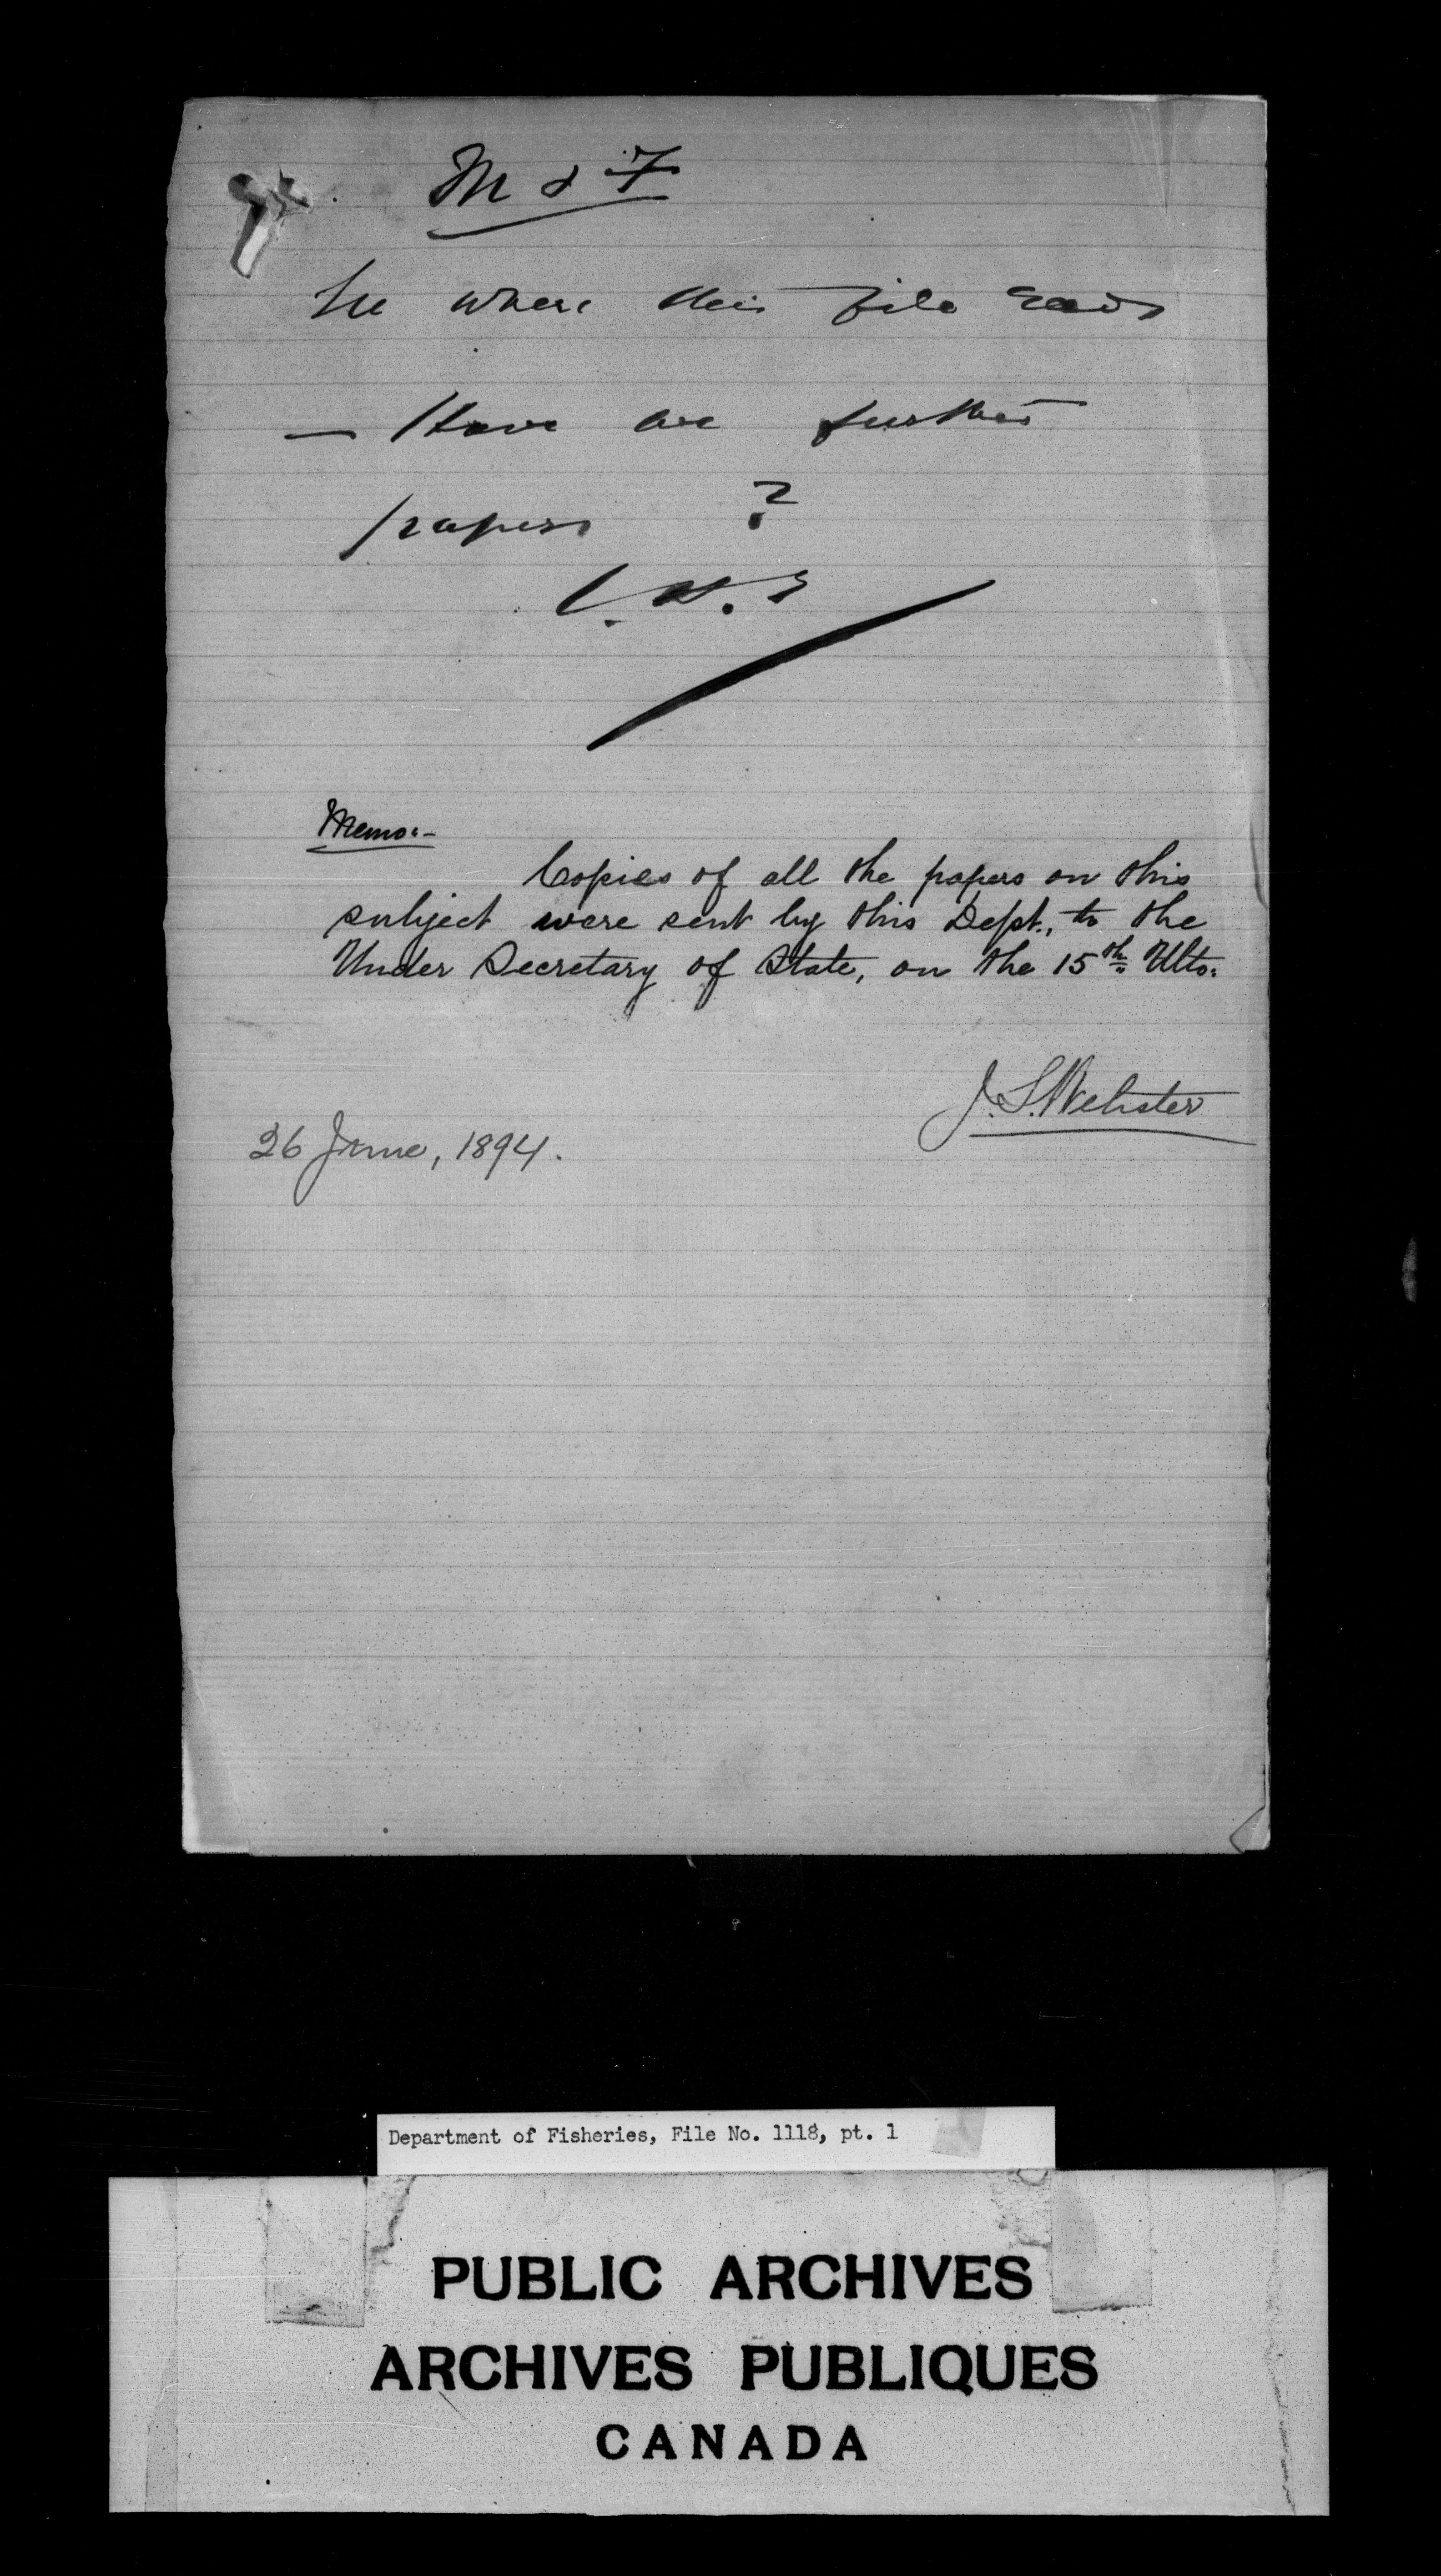 M & F
See where this file ends
— Have we further
papers ?
Memo:-
Copies of all the papers on this
subject were sent by this Dept., to the
Under Secretary of State, on the 15th Ulto:
J. S. Webster
26 June, 1894.
Department of Fisheries, File No. 1118, pt. 1
PUBLIC ARCHIVES
ARCHIVES PUBLIQUES
CANADA